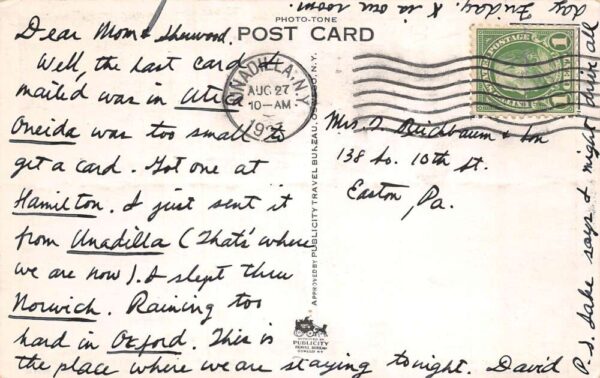 PHOTO-TONE
POST CARD
Dear Mom & Sherwood.
Well, the last card I
mailed was in Utica
Oneida was too small to
get a card. Got one at
Hamilton. I just sent it
from Unadilla (That's where
we are now). I slept thru
Norwich. Raining too
hard in Oxford. This is
the place where we are staying tonight. David
UNADILLA, N.Y.
AUG 27
10-AM
APPROVED BY PUBLICITY TRAVEL BUREAU, OSWEGO, N.Y.
PUBLICITY
TRAVEL BUREAU
OSWEGO NY
1
Mrs. D. Reichbaum & Son
138 So. 10th St.
Easton Pa.
P.S. Jake says I might drive all
day Friday. X is our room.